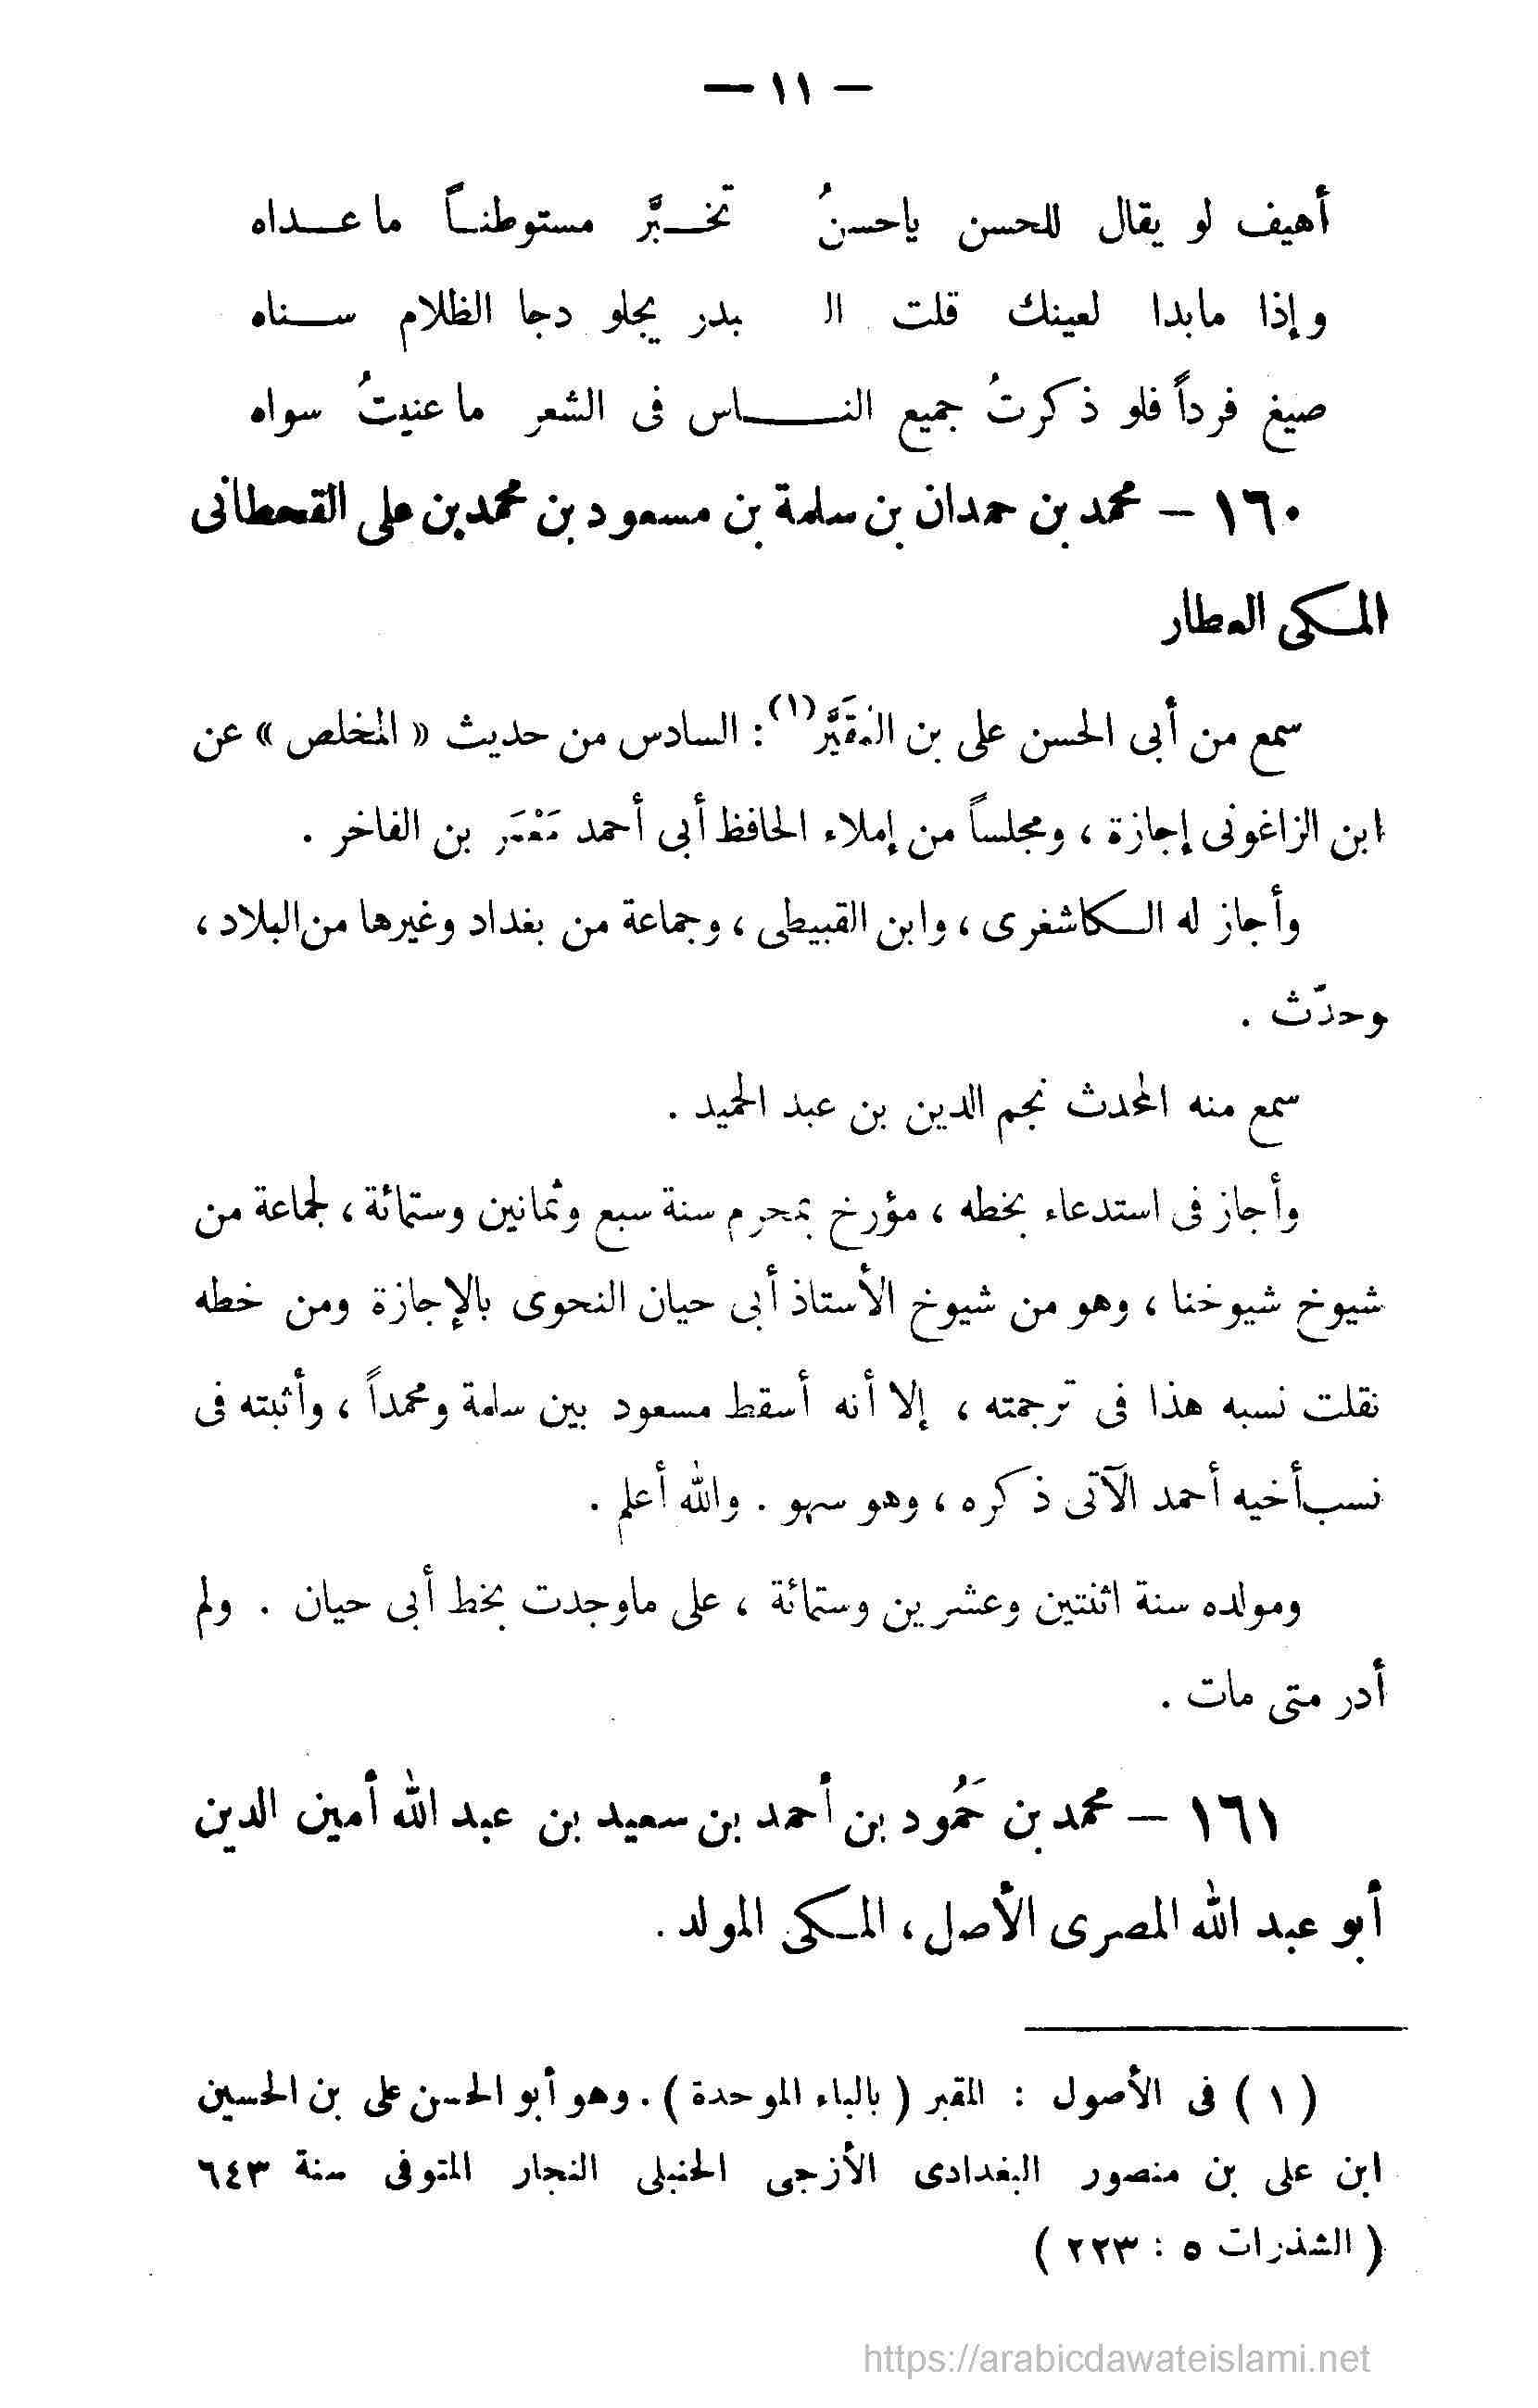 — ١١ —
أهيف لو يقال للحسن ياحسنُ تخـــبَّر مستوطنـــاً ما عـــداه
وإذا مابدا لعينك قلت الـ بدر يجلو دجا الظلام ســـناه
صيغ فرداً فلو ذكرتُ جميع النـــاس فى الشعر ما عنيتُ سواه
١٦٠ – محمد بن حمدان بن سلمة بن مسعود بن محمد بن على القحطانى
المكى العطار
سمع من أبى الحسن على بن المقَيَّر(١) : السادس من حديث « المخلص » عن
ابن الزاغونى إجازة ، ومجلساً من إملاء الحافظ أبى أحمد مَعْمَر بن الفاخر .
وأجاز له الكاشغرى ، وابن القبيطى ، وجماعة من بغداد وغيرها من البلاد ،
وحدّث .
سمع منه المحدث نجم الدين بن عبد الحميد .
وأجاز فى استدعاء بخطه ، مؤرخ بمحرم سنة سبع وثمانين وستمائة ، لجماعة من
شيوخ شيوخنا ، وهو من شيوخ الأستاذ أبى حيان النحوى بالإجازة ومن خطه
نقلت نسبه هذا فى ترجمته ، إلا أنه أسقط مسعود بين سلمة ومحمداً ، وأثبته فى
نسب أخيه أحمد الآتى ذكره ، وهو سهو . والله أعلم .
ومولده سنة اثنتين وعشرين وستمائة ، على ماوجدت بخط أبى حيان . ولم
أدر متى مات .
١٦١ – محمد بن حَمُود بن أحمد بن سعيد بن عبد الله أمين الدين
أبو عبد الله المصرى الأصل ، المكى المولد .
( ١ ) فى الأصول : المقبر ( بالباء الموحدة ) . وهو أبو الحسن على بن الحسين
ابن على بن منصور البغدادى الأزجى الحنبلى النجار المتوفى سنة ٦٤٣
( الشذرات ٥ : ٢٢٣ )
https://arabicdawateislami.net